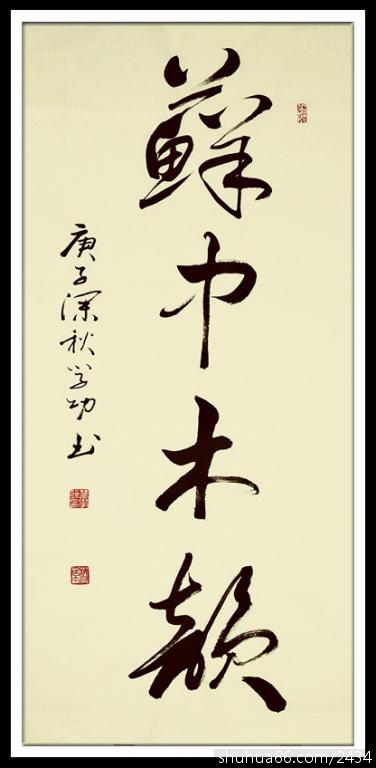 蘇巾木韻
庚子深秋学功书
shuhua66.com/2434